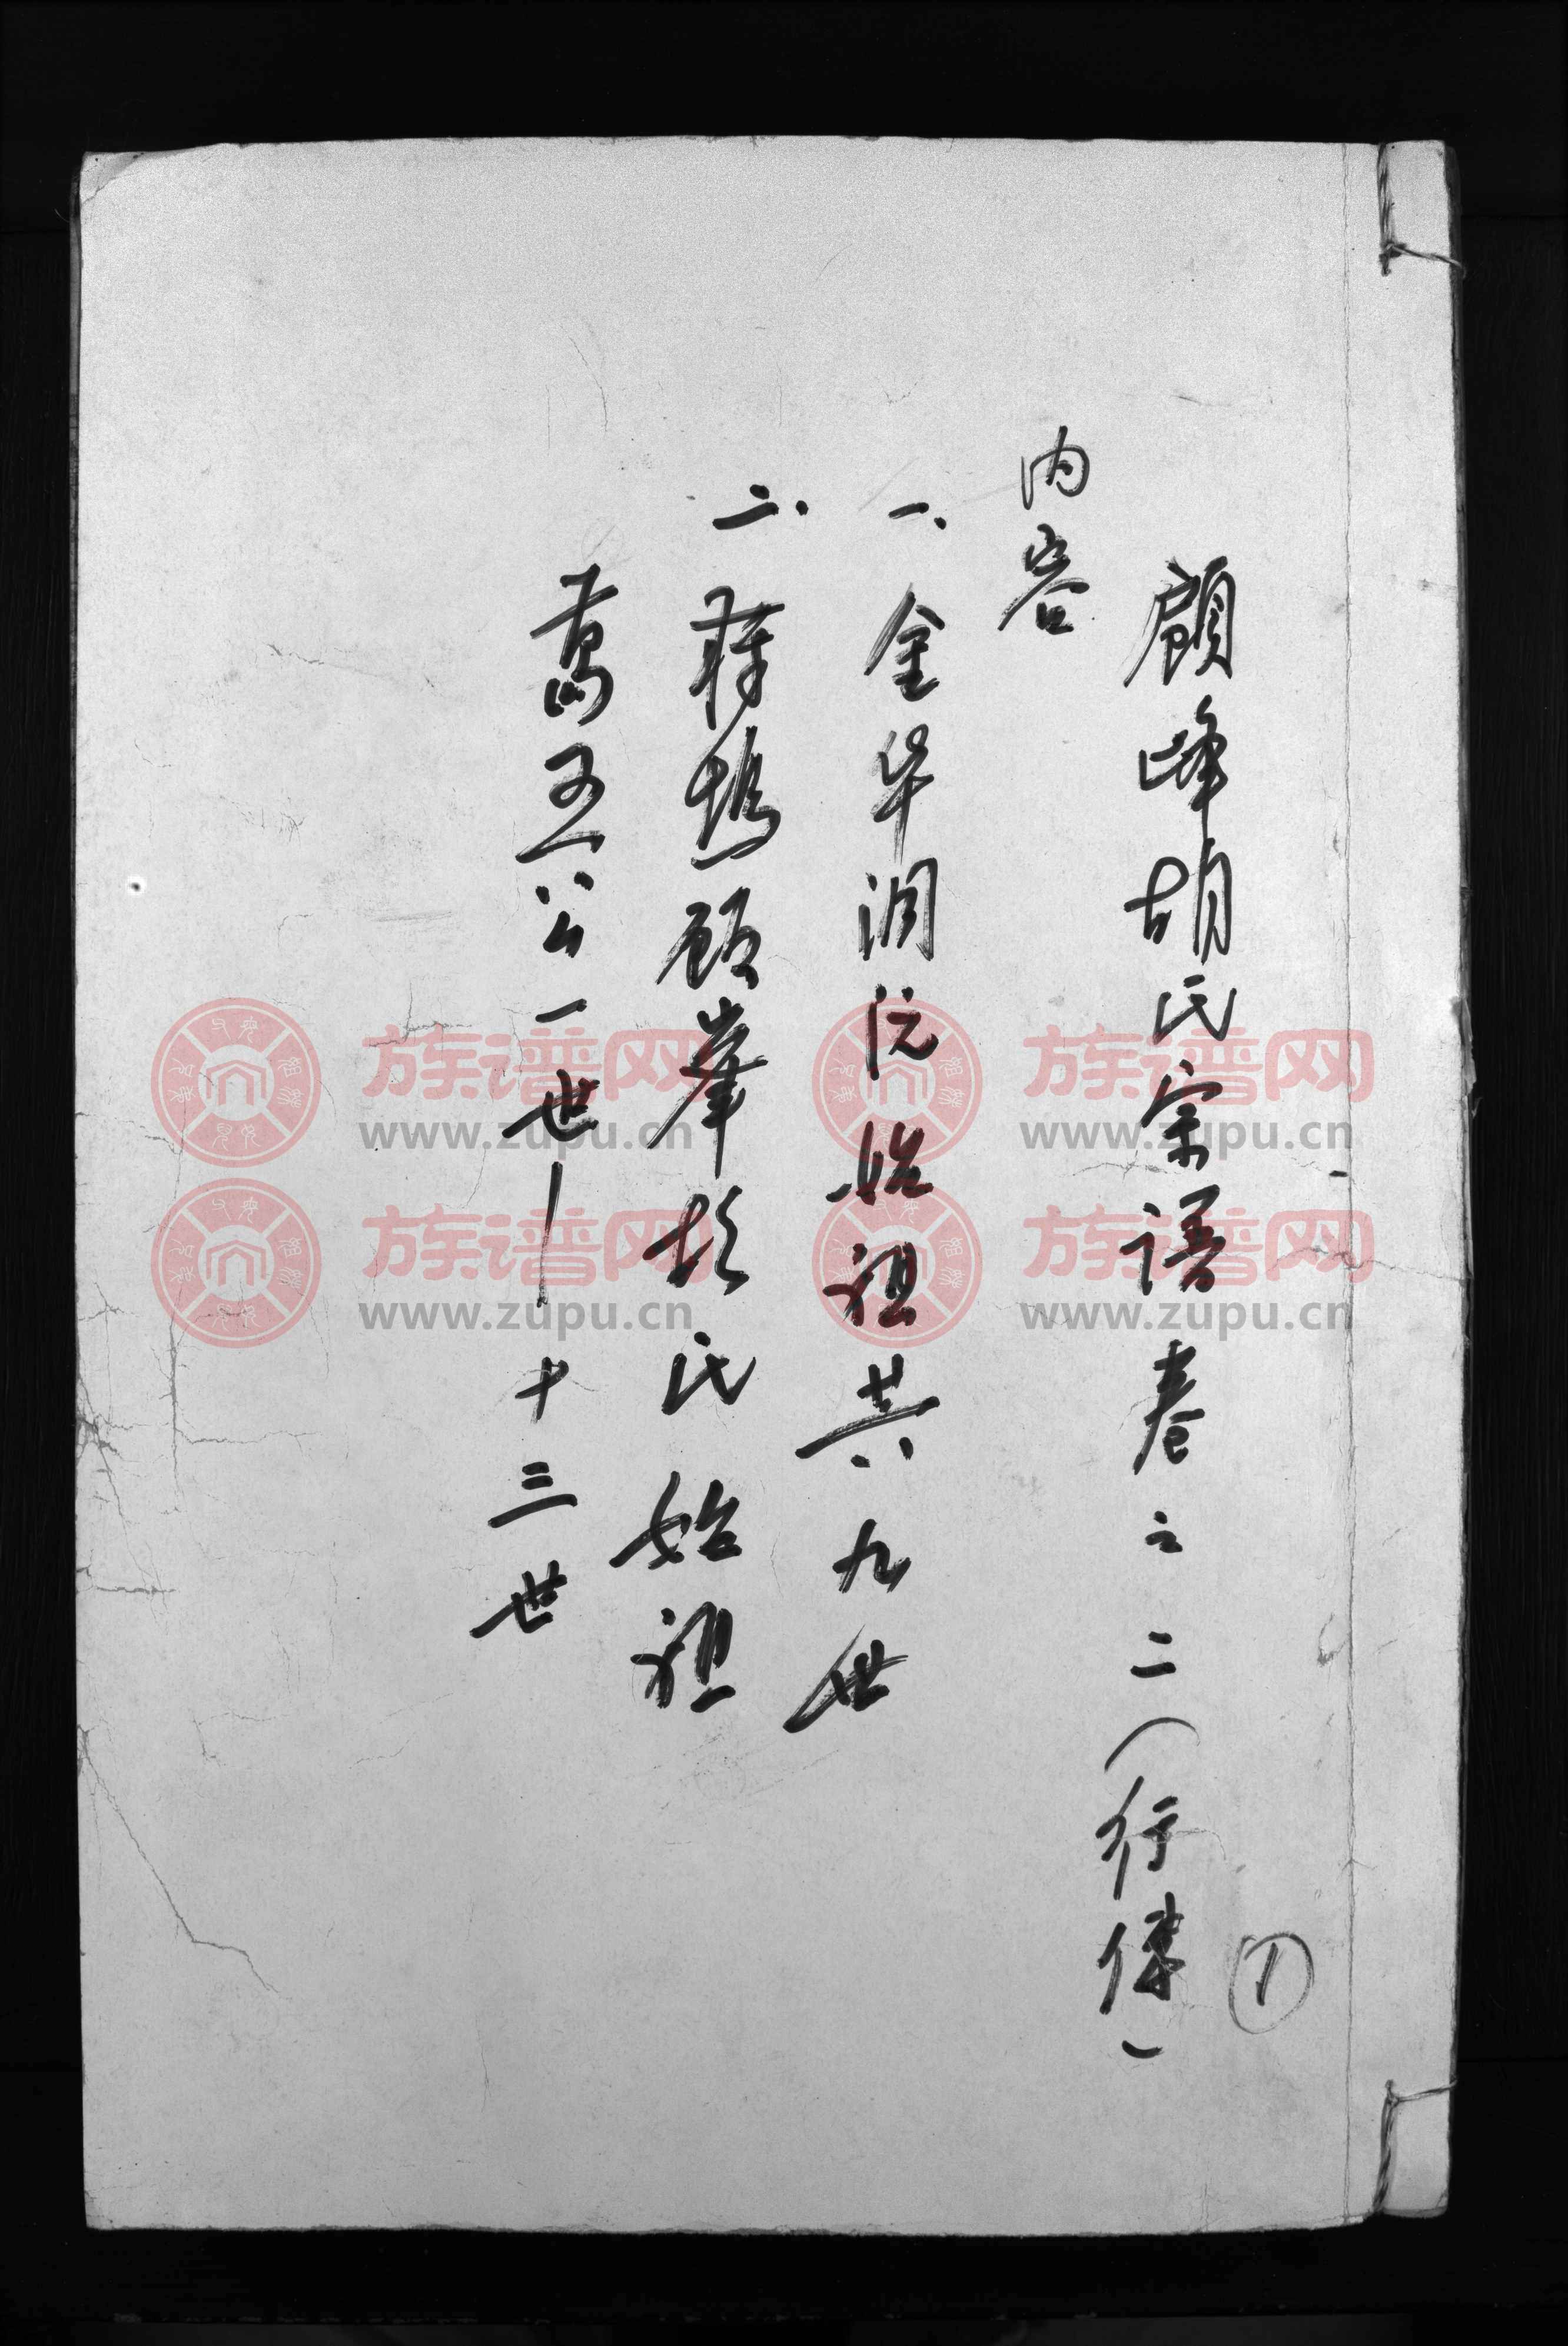 顧峰胡氏宗谱卷之二(行傳)
①
内容
一、金华润沅始祖共九世
二、顾峯胡氏始祖
萬五公一世—十三世
族谱网 www.zupu.cn
族谱网 www.zupu.cn
族谱网 www.zupu.cn
族谱网 www.zupu.cn